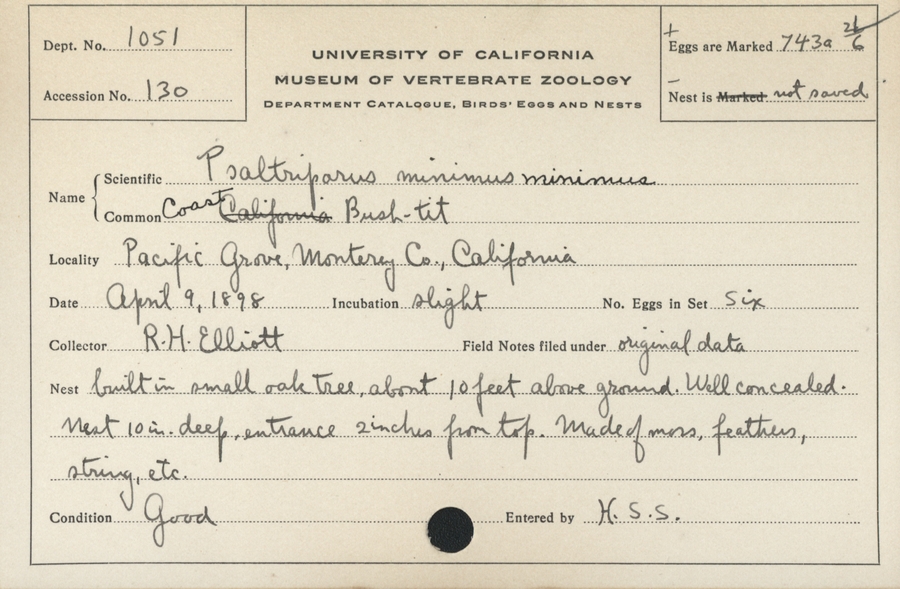 Dept. No. 1051
Accession No. 130
UNIVERSITY OF CALIFORNIA
MUSEUM OF VERTEBRATE ZOOLOGY
DEPARTMENT CATALOGUE, BIRDS' EGGS AND NESTS
+
Eggs are Marked 743a 26/6
–
Nest is Marked not saved
Name
Scientific Psaltriparus minimus minimus
Common Coast California Bush-tit
Locality Pacific Grove, Monterey Co., California
Date April 9, 1898 Incubation slight No. Eggs in Set Six
Collector R.H. Elliott Field Notes filed under original data
Nest built in small oak tree, about 10 feet above ground. Well concealed.
Nest 10 in. deep, entrance 2 inches from top. Made of moss, feathers,
string, etc.
Condition Good Entered by H. S. S.